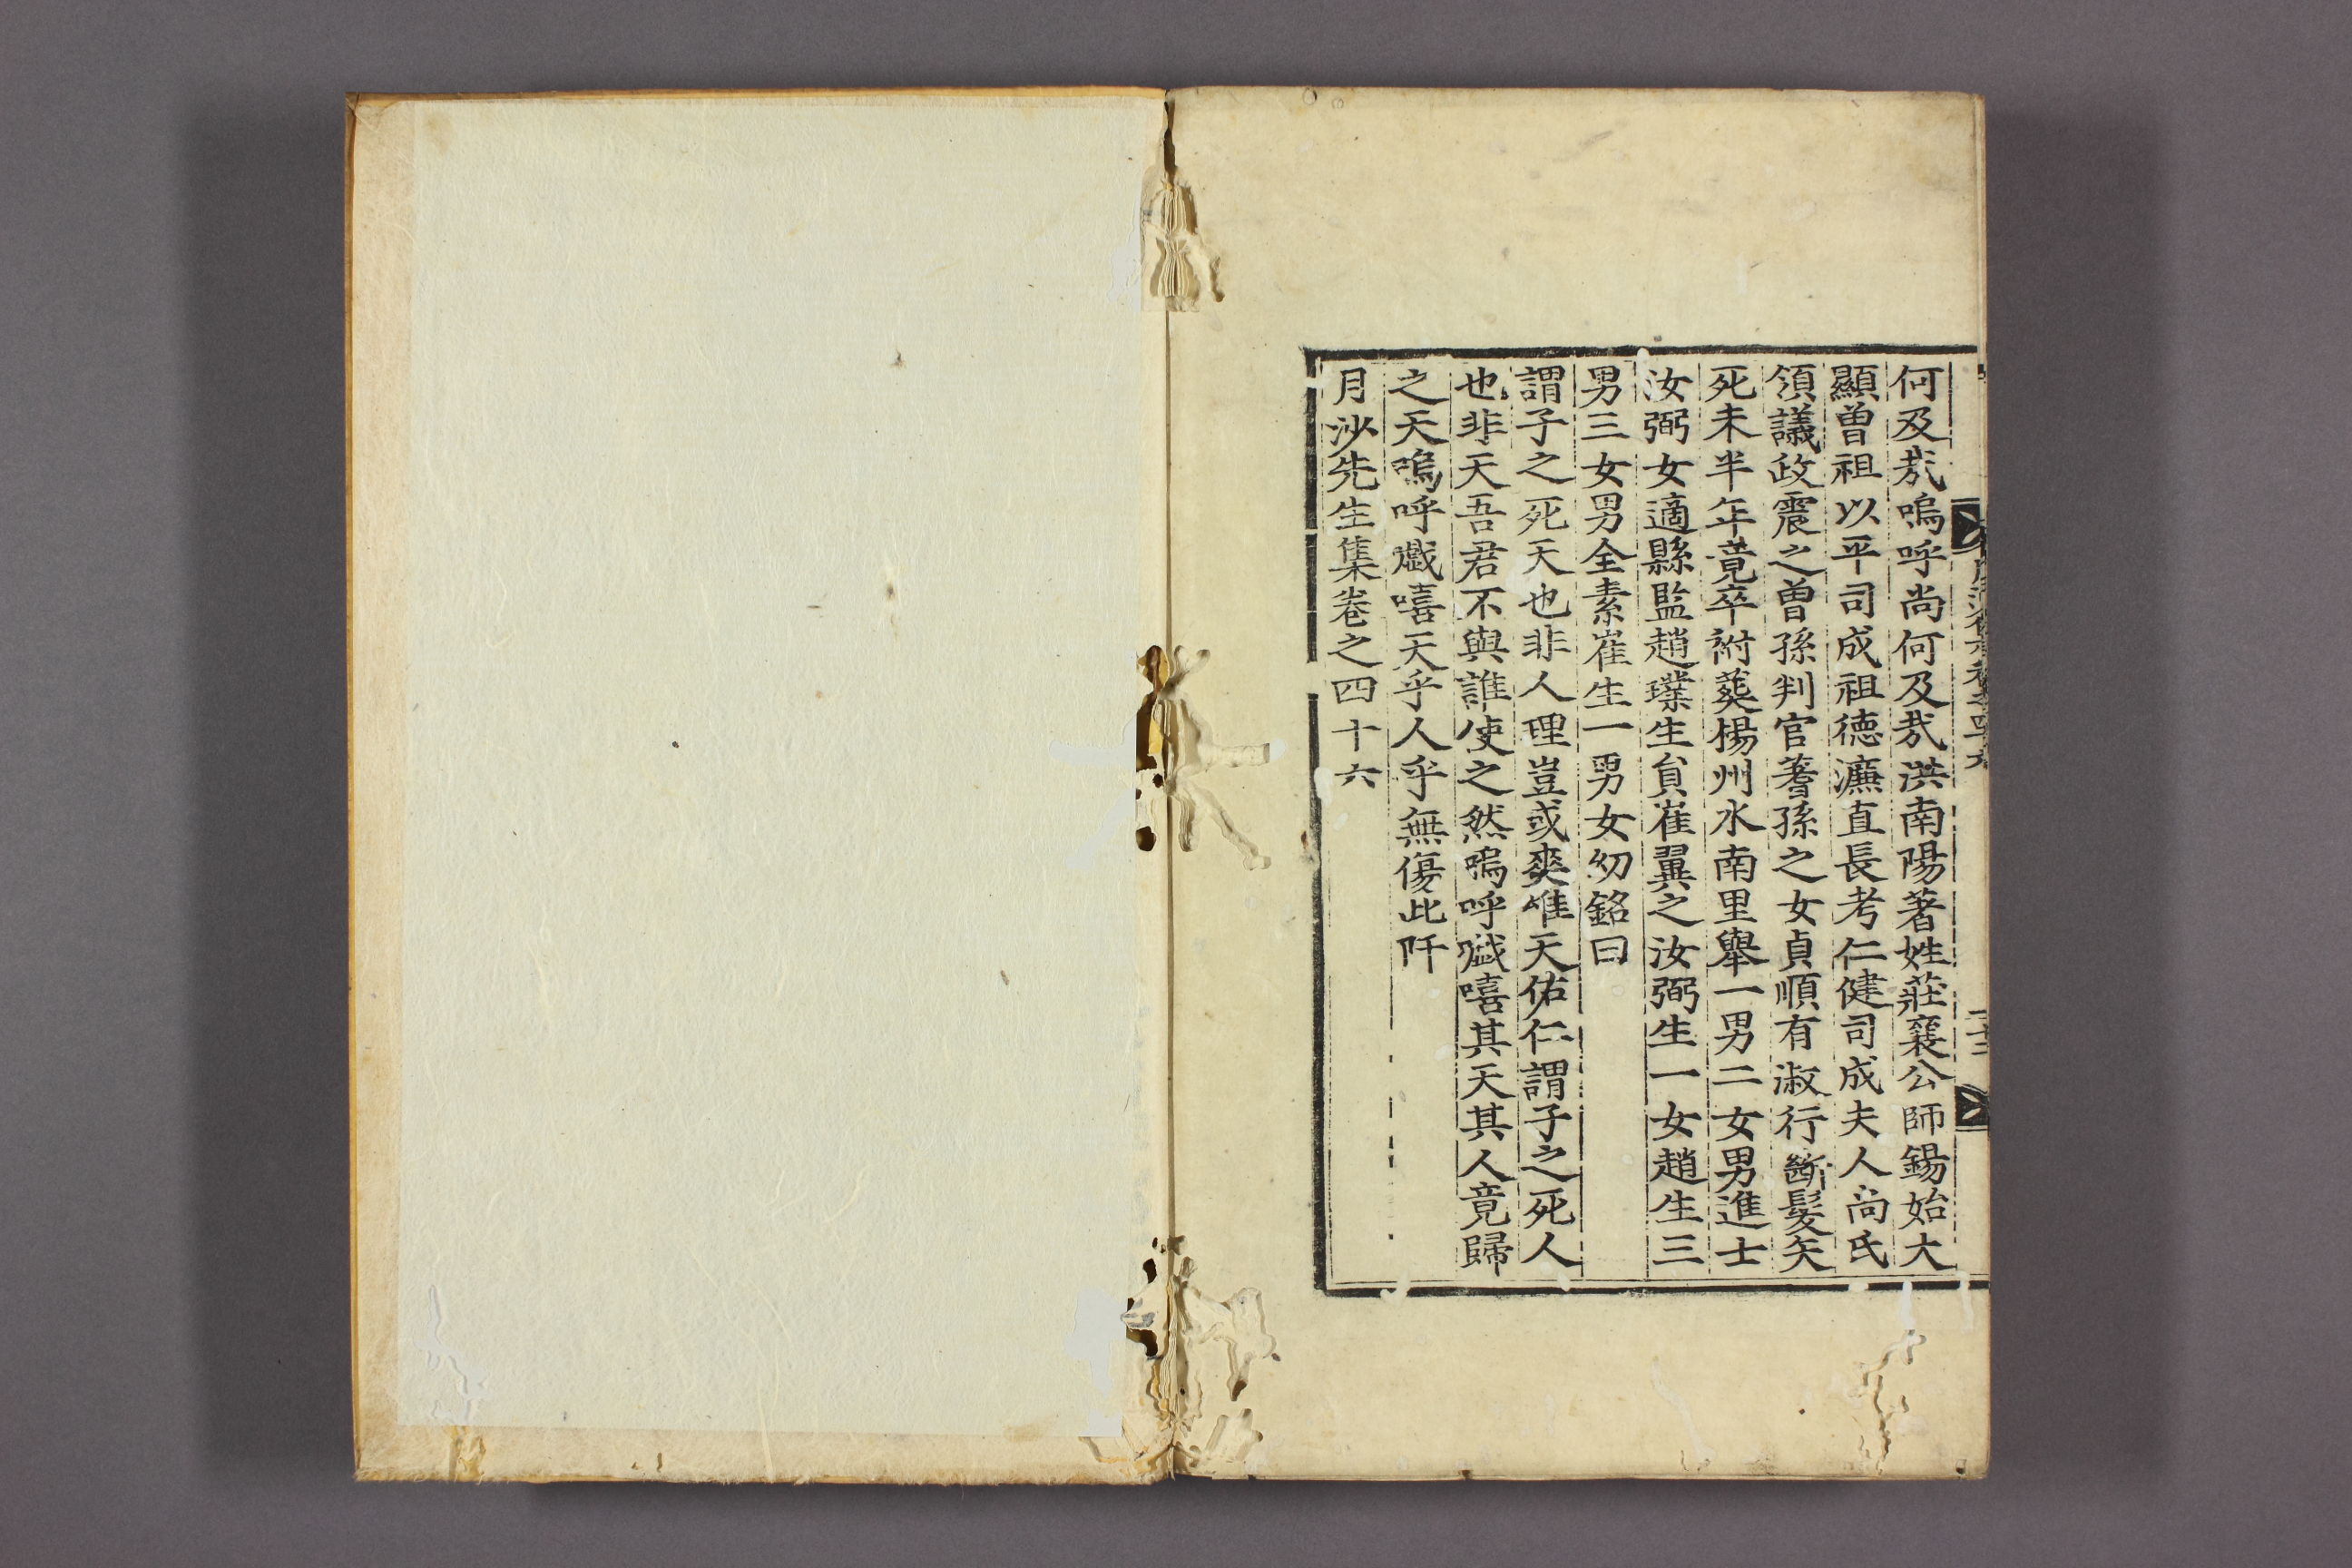 何及哉嗚呼尚何及哉洪南陽著姓莊襄公師錫始大
顯曾祖以平司成祖德濂直長考仁健司成夫人尚氏
領議政震之曾孫判官蓍孫之女貞順有淑行斷髮矢
死未半年竟卒祔葬楊州水南里舉一男二女男進士
汝弼女適縣監趙璞生員崔翼之汝弼生一女趙生三
男三女男全素崔生一男女幼銘曰
謂子之死天也非人理豈或爽唯天佑仁謂子之死人
也非天吾君不與誰使之然嗚呼戲嘻其天其人竟歸
之天嗚呼戲嘻天乎人乎無傷此阡
月沙先生集卷之四十六